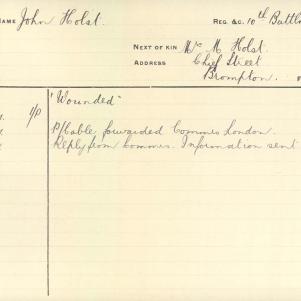 NAME John Holst. REG. &C. 10th Battln
NEXT OF KIN Mr. M Holst.
ADDRESS Chief Street
Brompton.
1/P "Wounded"
P/Cable forwarded Commis London.
Reply from Commis. Information sent